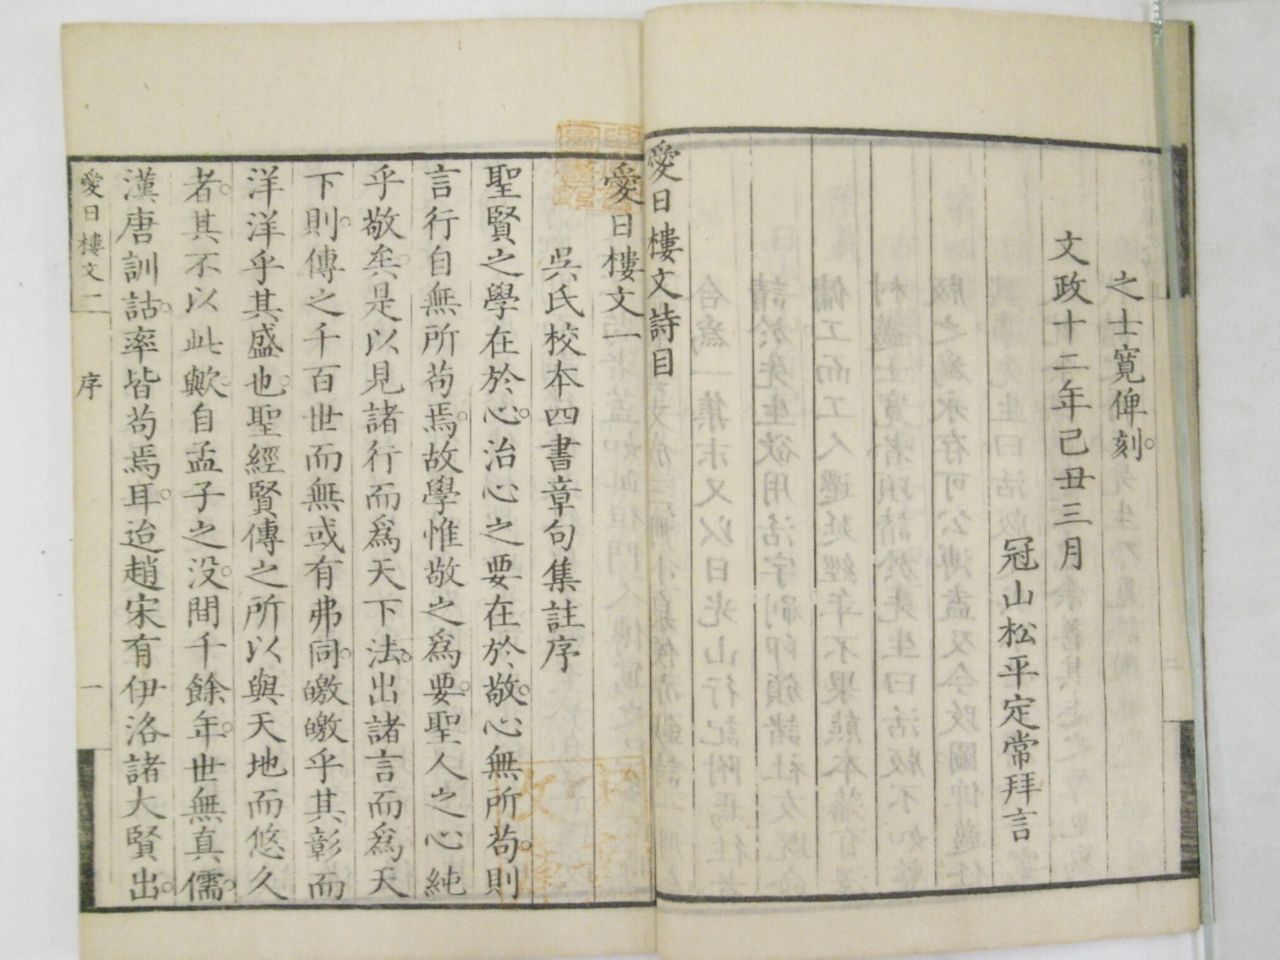 之士寛俾刻。
文政十二年己丑三月
冠山松平定常拜言
愛日樓文詩目
愛日樓文一
吳氏校本四書章句集註序
聖賢之學在於心。治心之要在於敬。心無所苟。則
言行自無所苟焉。故學惟敬之爲要。聖人之心純
乎敬矣。是以見諸行而爲天下法。出諸言而爲天
下則。傳之千百世而無或有弗同。皦皦乎其彰而
洋洋乎其盛也。聖經賢傳之所以與天地而悠久
者。其不以此歟。自孟子之没。間千餘年。世無真儒。
漢唐訓詁。率皆苟焉耳。迨趙宋有伊洛諸大賢出。
愛日樓文二 序 一